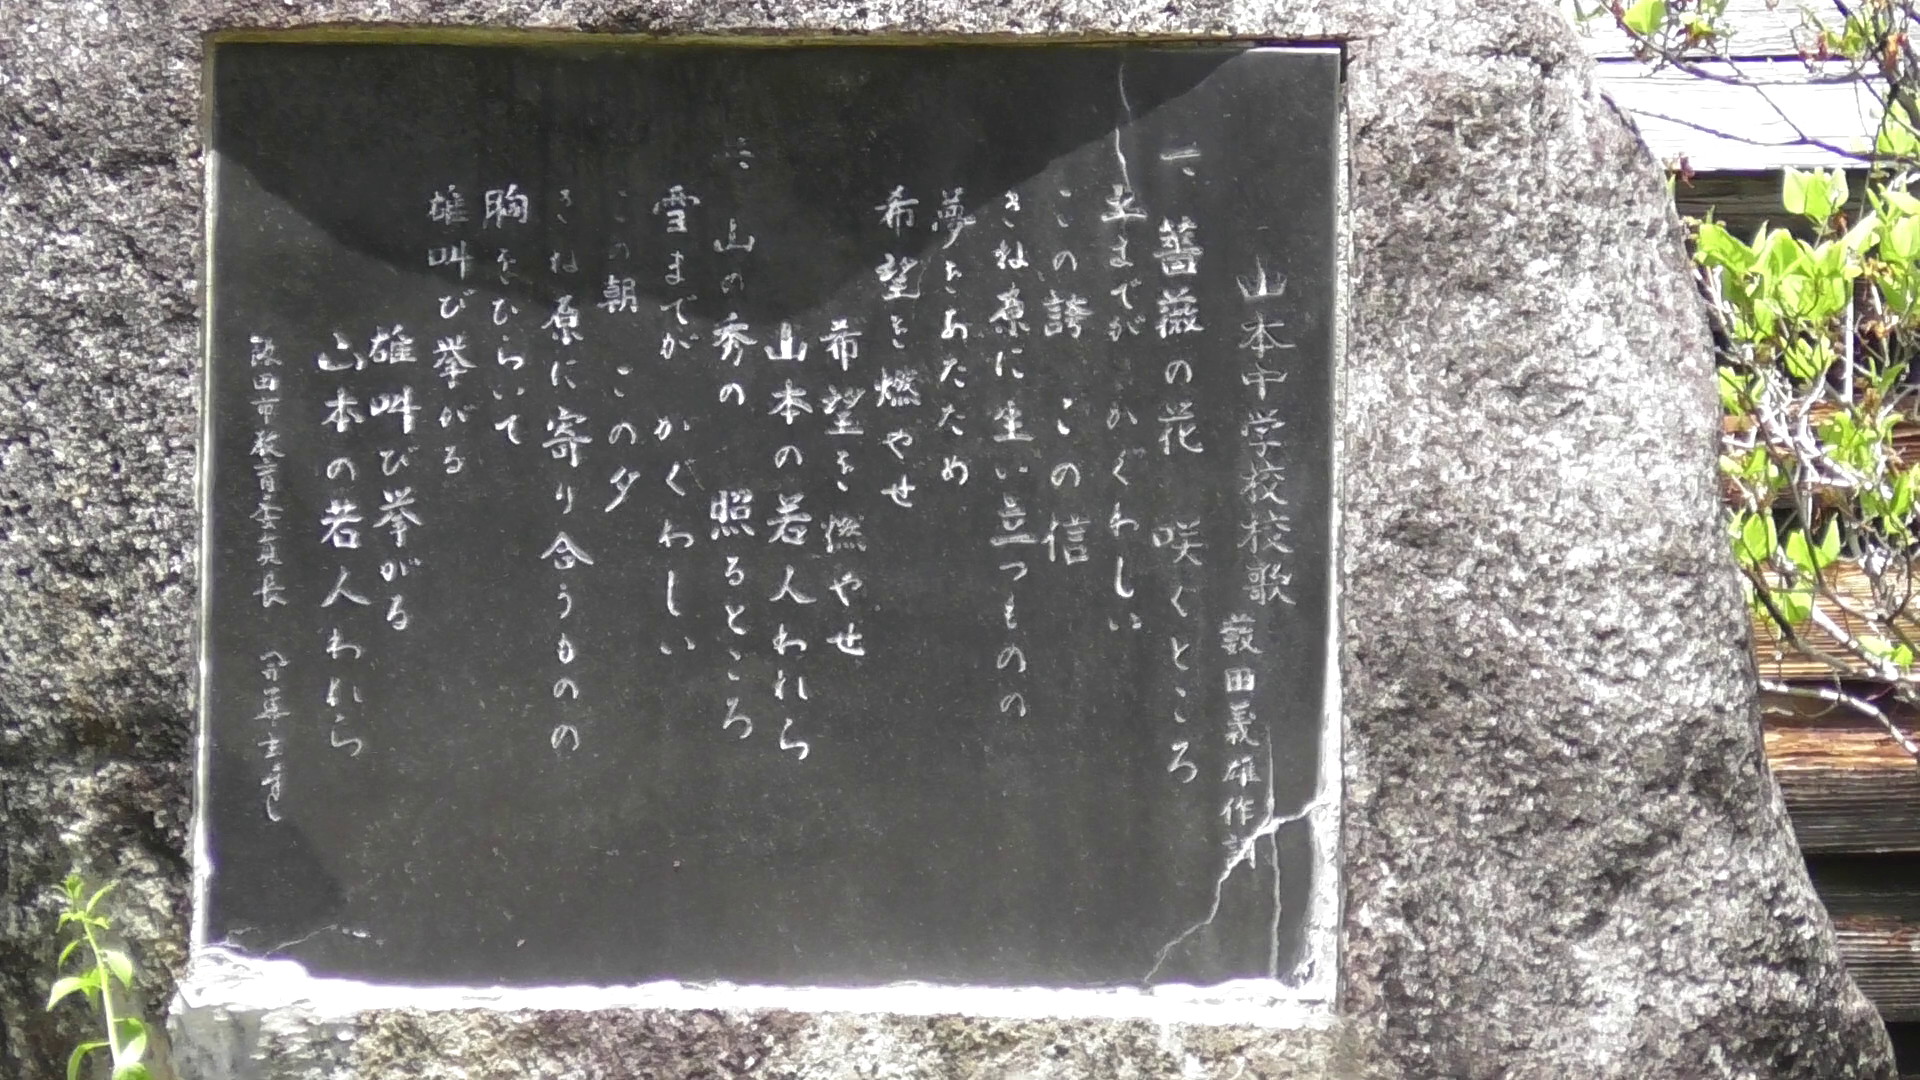 山本中学校校歌
薮田義雄作詞
一、薔薇の花　咲くところ
土までが　かぐわしい
この誇　この信
きね原に生い立つものの
夢をあたため
希望を燃やせ
希望を燃やせ
山本の若人われら
二、山の秀の　照るところ
雪までが　かぐわしい
この朝　この夕
きね原に寄り合うものの
胸をひらいて
雄叫び挙がる
雄叫び挙がる
山本の若人われら
飯田市教育委員長